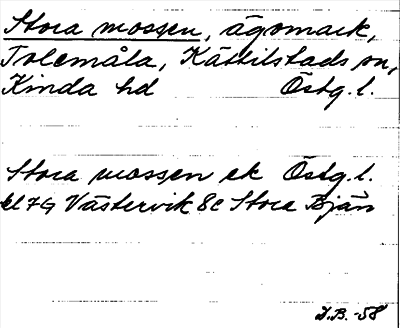 Stora mossen, ägomark,
Tolemåla, Kättilstads sn,
Kinda hd Östg.l.
Stora mossen ek Östg.l.
bl 7G Västervik 8c Stora Bjän
I.B. -58